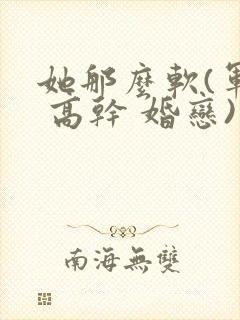 她那麼軟(軍
高幹 婚戀)
南海無雙